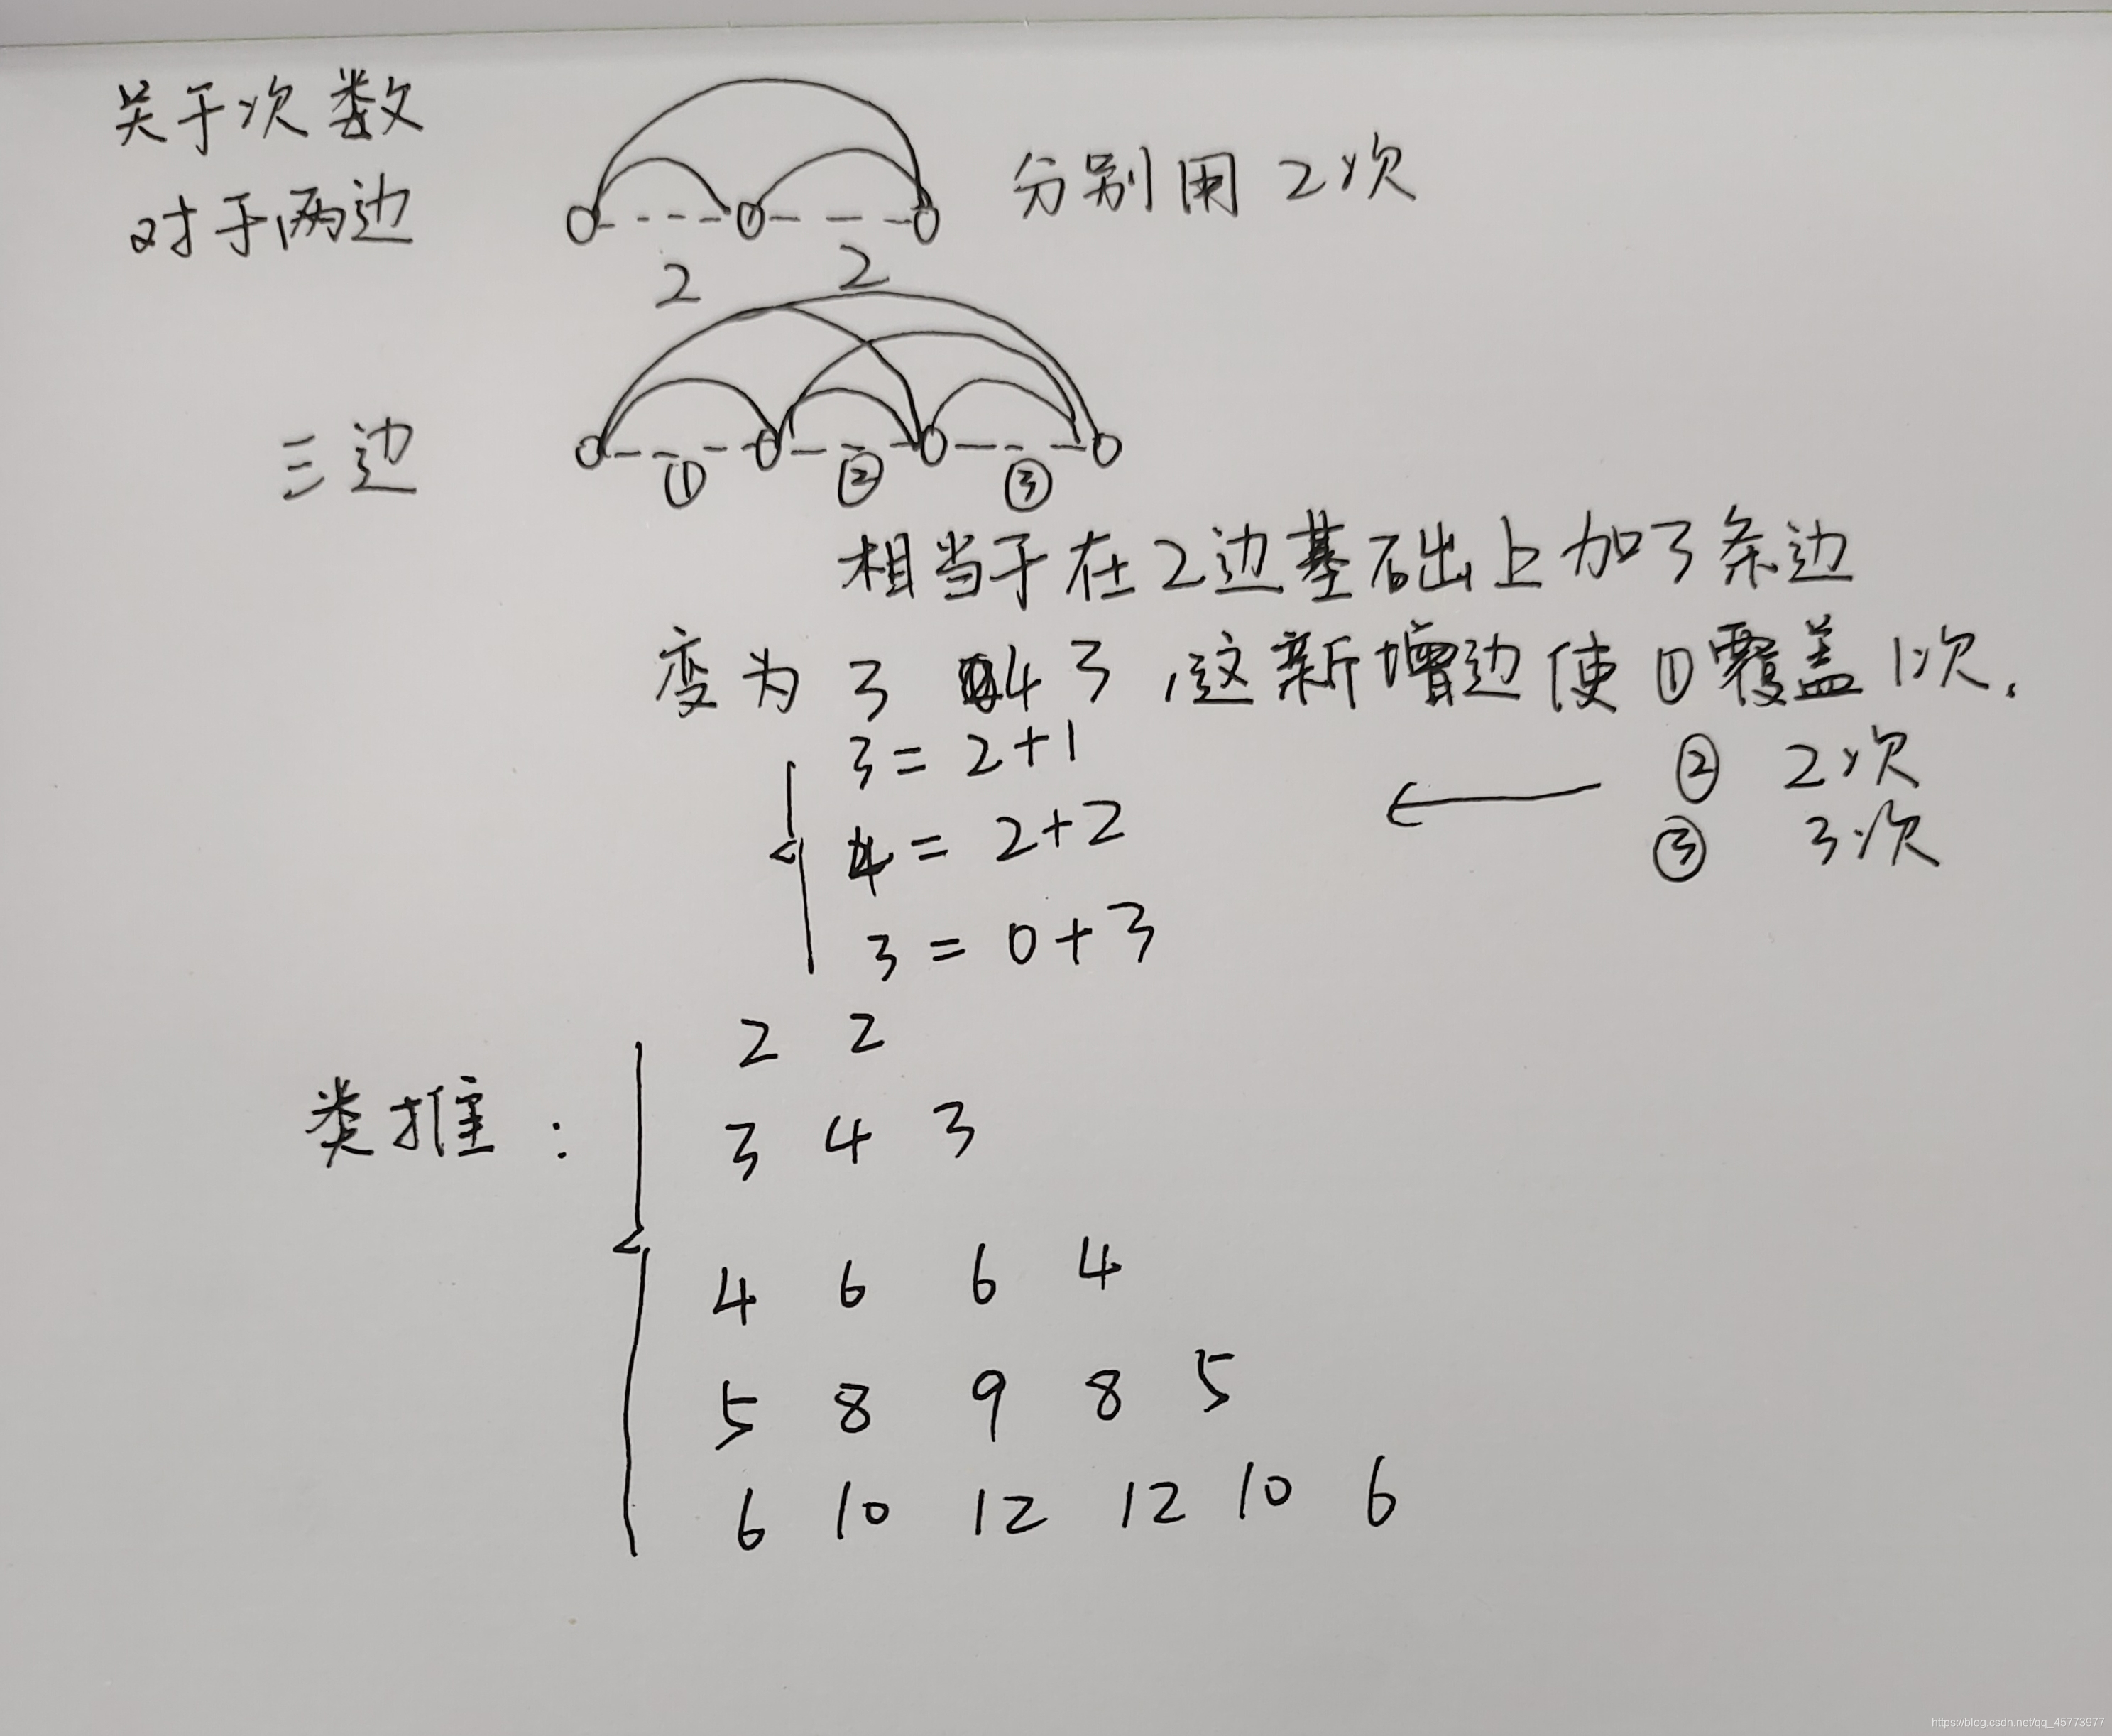 关于次数
对于两边 分别用2次
2 2
三边
① ② ③
相当于在2边基础上加了条边
变为 3 4 3，这新增边使①覆盖1次.
3=2+1 ② 2次
4=2+2 ③ 3次
3=0+3
2 2
类推: 3 4 3
4 6 6 4
5 8 9 8 5
6 10 12 12 10 6
https://blog.csdn.net/qq_45773977